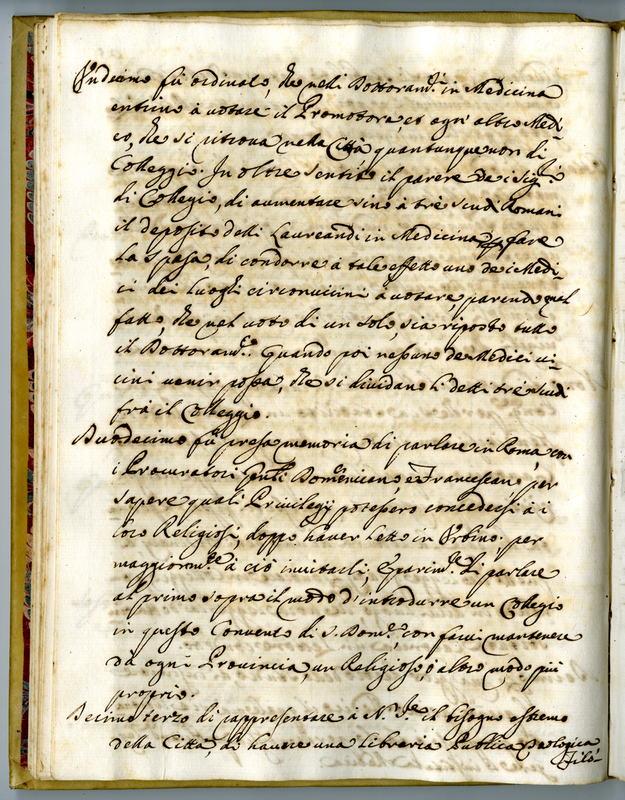 Undecimo fù ordinato, che nelli Dottoran.ti in Medicina
entrino à votare il Promotore, et ogn'altro Medi-
co, che si ritrova nella Città quantunque non di
Colleggio. In oltre sentito il parere de i Sig.ri
di Collegio, di aumentare sino à trè scudi Romani
il deposito delli Laureandi in Medicina p fare
la spesa, di condorre à tale effetto uno de i Medi-
ci dei luoghi circonuicini à votare, parendo mal
fatto, che nel voto di un solo, sia riposto tutto
il Dottoram.to. Quando poi nessuno de Medici vi-
cini venir possa, che si diuidano li detti trè scudi
frà il Colleggio.
Duodecimo fù presa memoria di parlare in Roma, con
i Procuratori Gnli Domenicano, e Francescano per
sapere quali Privilegij potessero concedersi à i
loro Religiosi, doppo hauer letto in Urbino, per
maggiorm.te à ciò invitarli, e parim.te di parlare
al primo sopra il modo d'introdurre un Collegio
in questo Convento di S. Dom.co, con farui mantenere
da ogni Provincia, un Religioso, ò altro modo più
proprio.
Decimo terzo di rappresentare à N. Sre il bisogno estremo
della Città, di hauere una Libreria Publica
Filo-